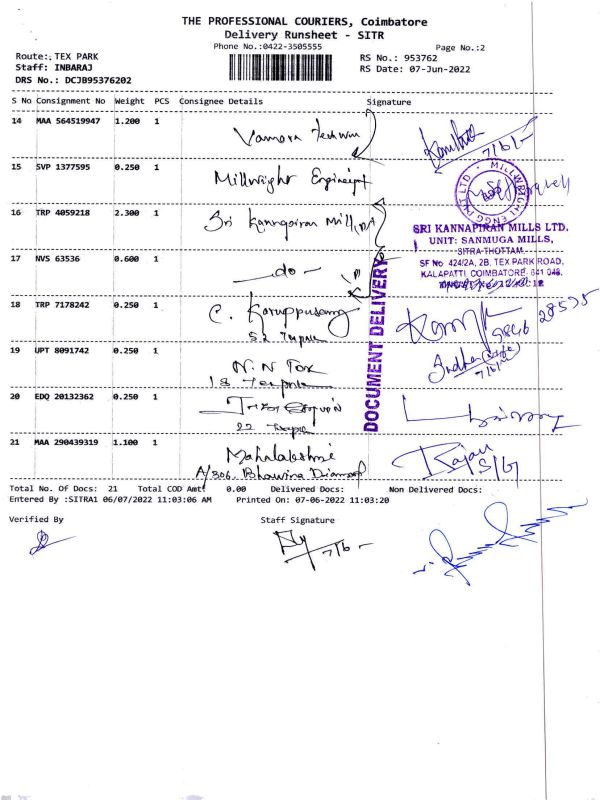 THE PROFESSIONAL COURIERS, Coimbatore
Delivery Runsheet - SITR
Phone No.:0422-3505555
Page No.:2
Route:: TEX PARK
RS No.: 953762
Staff: INBARAJ
RS Date: 07-Jun-2022
DRS No.: DCJB95376202
S No Consignment No Weight PCS Consignee Details Signature
14 MAA 564519947 1.200 1
15 SVP 1377595 0.250 1
Millwright
16 TRP 4059218 2.300 1
Sri Kannapiran Mill
SRI KANNAPIRAN MILLS LTD.
UNIT: SANMUGA MILLS,
SITRA-THOTTAM
17 NVS 63536 0.600 1
-do-
SF No. 424/2A, 2B, TEX PARK ROAD,
KALAPATTI, COIMBATORE- 641 048.
DOCUMENT DELIVERY
18 TRP 7178242 0.250 1
C. Karuppusamy
9846 28575
19 UPT 8091742 0.250 1
N.N Tex
7/6/
20 EDQ 20132362 0.250 1
22
21 MAA 290439319 1.100 1
Mahalakshmi
A/306, Bhawina Diamond
Rajan
Total No. Of Docs: 21 Total COD Amt: 0.00 Delivered Docs: Non Delivered Docs:
Entered By :SITRA1 06/07/2022 11:03:06 AM Printed On: 07-06-2022 11:03:20
Verified By Staff Signature
7/6-